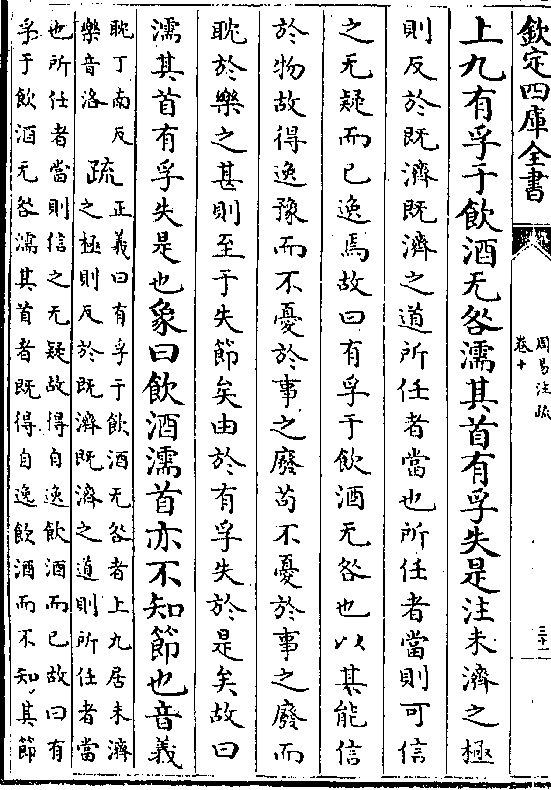 欽定四庫全書
周易注疏
卷十
三十二
上九有孚于飲酒无咎濡其首有孚失是注未濟之極
則反於既濟既濟之道所任者當也所任者當則可信
之无疑而已逸焉故曰有孚于飲酒无咎也以其能信
於物故得逸豫而不憂於事之廢苟不憂於事之廢而
耽於樂之甚則至于失節矣由於有孚失於是矣故曰
濡其首有孚失是也象曰飲酒濡首亦不知節也音義
耽丁南反
樂音洛
疏
正義曰有孚于飲酒无咎者上九居未濟
之極則反於既濟既濟之道則所任者當
也所任者當則信之无疑故得自逸飲酒而已故曰有
孚于飲酒无咎濡其首者既得自逸飲酒而不知其節